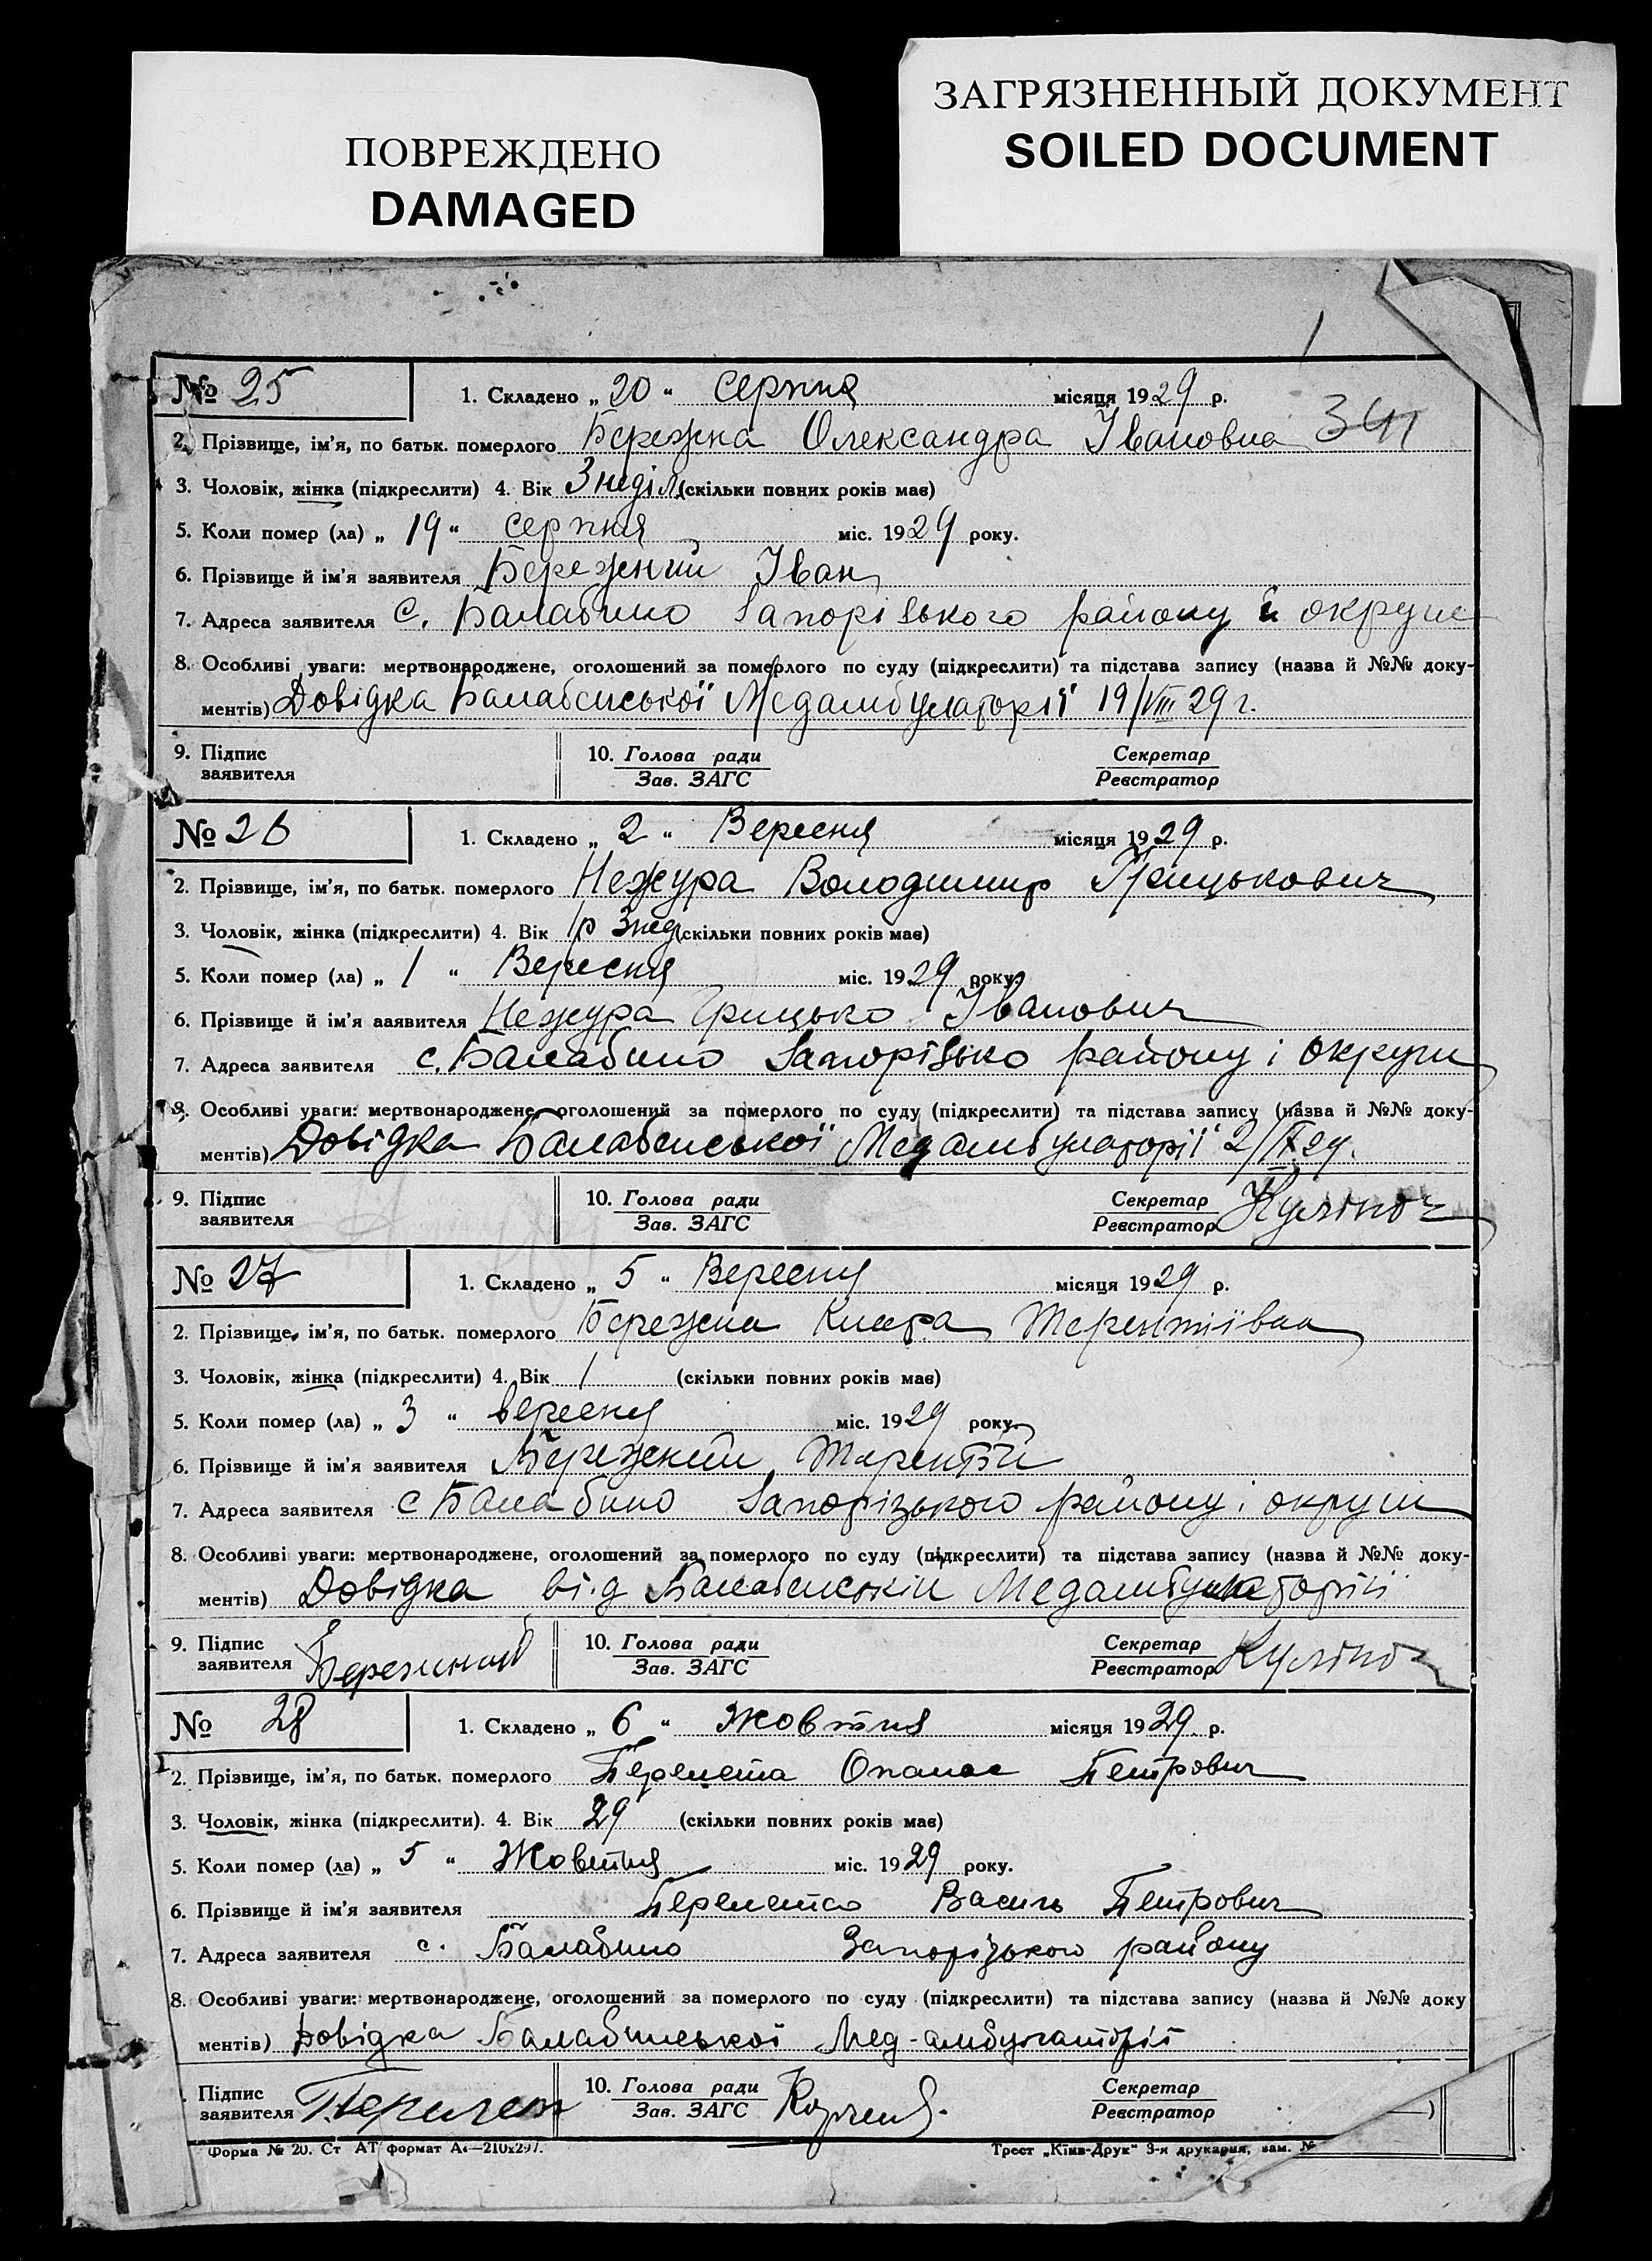 ПОВРЕЖДЕНО
DAMAGED
ЗАГРЯЗНЕННЫЙ ДОКУМЕНТ
SOILED DOCUMENT
№ 25 1. Складено „ 20 “ серпня місяця 1929 р.
2. Прізвище, ім'я, по батьк. померлого Бережна Олександра Івановна
3. Чоловік, жінка (підкреслити) 4. Вік 3 неділ (скільки повних років має)
5. Коли помер (ла) „ 19 “ серпня міс. 1929 року.
6. Прізвище й ім'я заявителя Бережний Іван
7. Адреса заявителя с. Балабино Запорізького району й округи
8. Особливі уваги: мертвонароджене, оголошений за померлого по суду (підкреслити) та підстава запису (назва й №№ доку-
ментів) Довідка Балабенської Медамбулаторії 19/VIII 29 г.
9. Підпис заявителя 10. Голова ради Зав. ЗАГС Секретар Реєстратор
№ 26 1. Складено „ 2 “ Вересня місяця 1929 р.
2. Прізвище, ім'я, по батьк. померлого Нежура Володимир Грицькович
3. Чоловік, жінка (підкреслити) 4. Вік 1р 3нед (скільки повних років має)
5. Коли помер (ла) „ 1 “ Вересня міс. 1929 року.
6. Прізвище й ім'я заявителя Нежура Грицько Іванович
7. Адреса заявителя с. Балабино Запорізько району і округи
8. Особливі уваги: мертвонароджене, оголошений за померлого по суду (підкреслити) та підстава запису (назва й №№ доку-
ментів) Довідка Балабенської Медамбулаторії 2/IX 29.
9. Підпис заявителя 10. Голова ради Зав. ЗАГС Секретар Реєстратор
№ 27 1. Складено „ 5 “ Вересня місяця 1929 р.
2. Прізвище, ім'я, по батьк. померлого Бережна Клара Терентіівна
3. Чоловік, жінка (підкреслити) 4. Вік 1 (скільки повних років має)
5. Коли помер (ла) „ 3 “ вересня міс. 1929 року.
6. Прізвище й ім'я заявителя Бережний Терентій
7. Адреса заявителя с Балабино Запорізького району і округи
8. Особливі уваги: мертвонароджене, оголошений за померлого по суду (підкреслити) та підстава запису (назва й №№ доку-
ментів) Довідка від Балабенській Медамбулаторіі
9. Підпис заявителя 10. Голова ради Зав. ЗАГС Секретар Реєстратор
№ 28 1. Складено „ 6 “ Жовтня місяця 1929 р.
2. Прізвище, ім'я, по батьк. померлого Опанас Петрович
3. Чоловік, жінка (підкреслити). 4. Вік 29 (скільки повних років має)
5. Коли помер (ла) „ 5 “ Жовтня міс. 1929 року.
6. Прізвище й ім'я заявителя Василь Петрович
7. Адреса заявителя с. Балабино Запорізького району
8. Особливі уваги: мертвонароджене, оголошений за померлого по суду (підкреслити) та підстава запису (назва й №№ доку
ментів) Довідка Балабинської Мед-амбулаторії
Підпис заявителя 10. Голова ради Зав. ЗАГС Секретар Реєстратор
Форма № 20. Ст АТ формат А4—210х297. Трест „Київ-Друк“ 3-я друкарня, зам. №